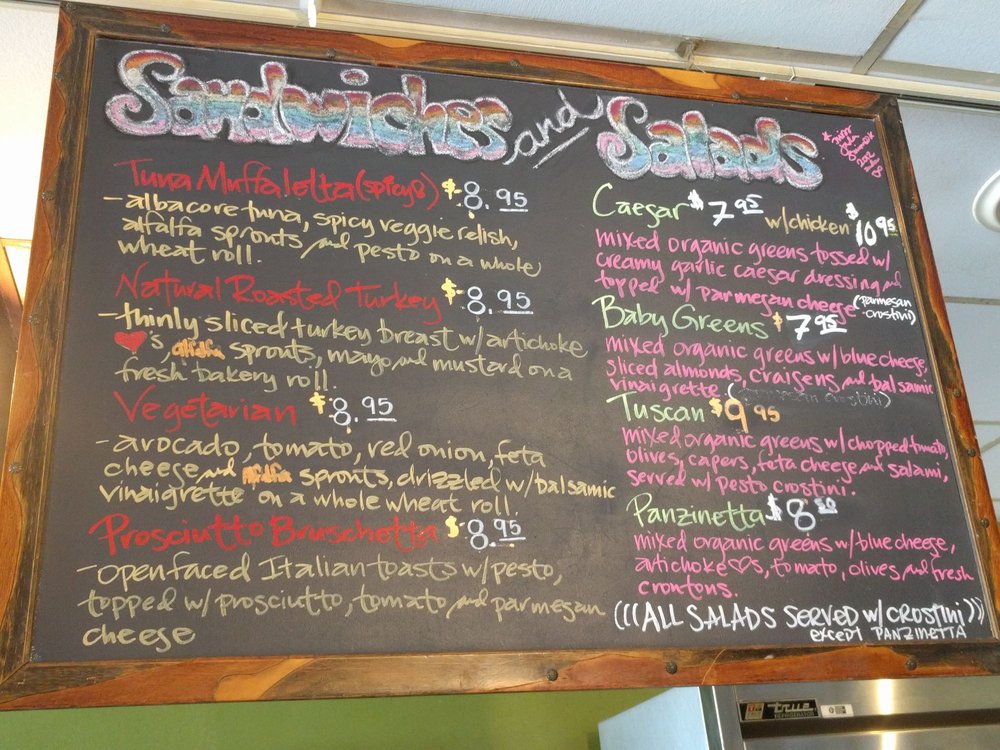 Sandwiches and Salads
Tuna Muffaletta (spicy) $8.95
-albacore tuna, spicy veggie relish,
alfalfa sprouts and pesto on a whole
wheat roll.
Natural Roasted Turkey $8.95
-thinly sliced turkey breast w/artichoke
♥'s, alfalfa sprouts, mayo and mustard on a
fresh bakery roll.
Vegetarian $8.95
-avocado, tomato, red onion, feta
cheese and alfalfa sprouts, drizzled w/balsamic
vinaigrette on a whole wheat roll.
Prosciutto Bruschetta $8.95
-openfaced Italian toasts w/pesto,
topped w/prosciutto, tomato, and parmesan
cheese
Caesar $7.95 w/chicken $10.95
mixed organic greens tossed w/
creamy garlic caesar dressing and
topped w/parmesan cheese (parmesan
crostini)
Baby Greens $7.95
mixed organic greens w/blue cheese,
sliced almonds, craisens and balsamic
vinaigrette. (parmesan crostini)
Tuscan $9.95
mixed organic greens w/chopped tomato,
olives, capers, feta cheese and salami,
served w/pesto crostini.
Panzinetta $8.50
mixed organic greens w/blue cheese,
artichoke ♥s, tomato, olives and fresh
crontons.
(((ALL SALADS SERVED w/CROSTINI)))
except PANZINETTA
true
REFRIGERATION